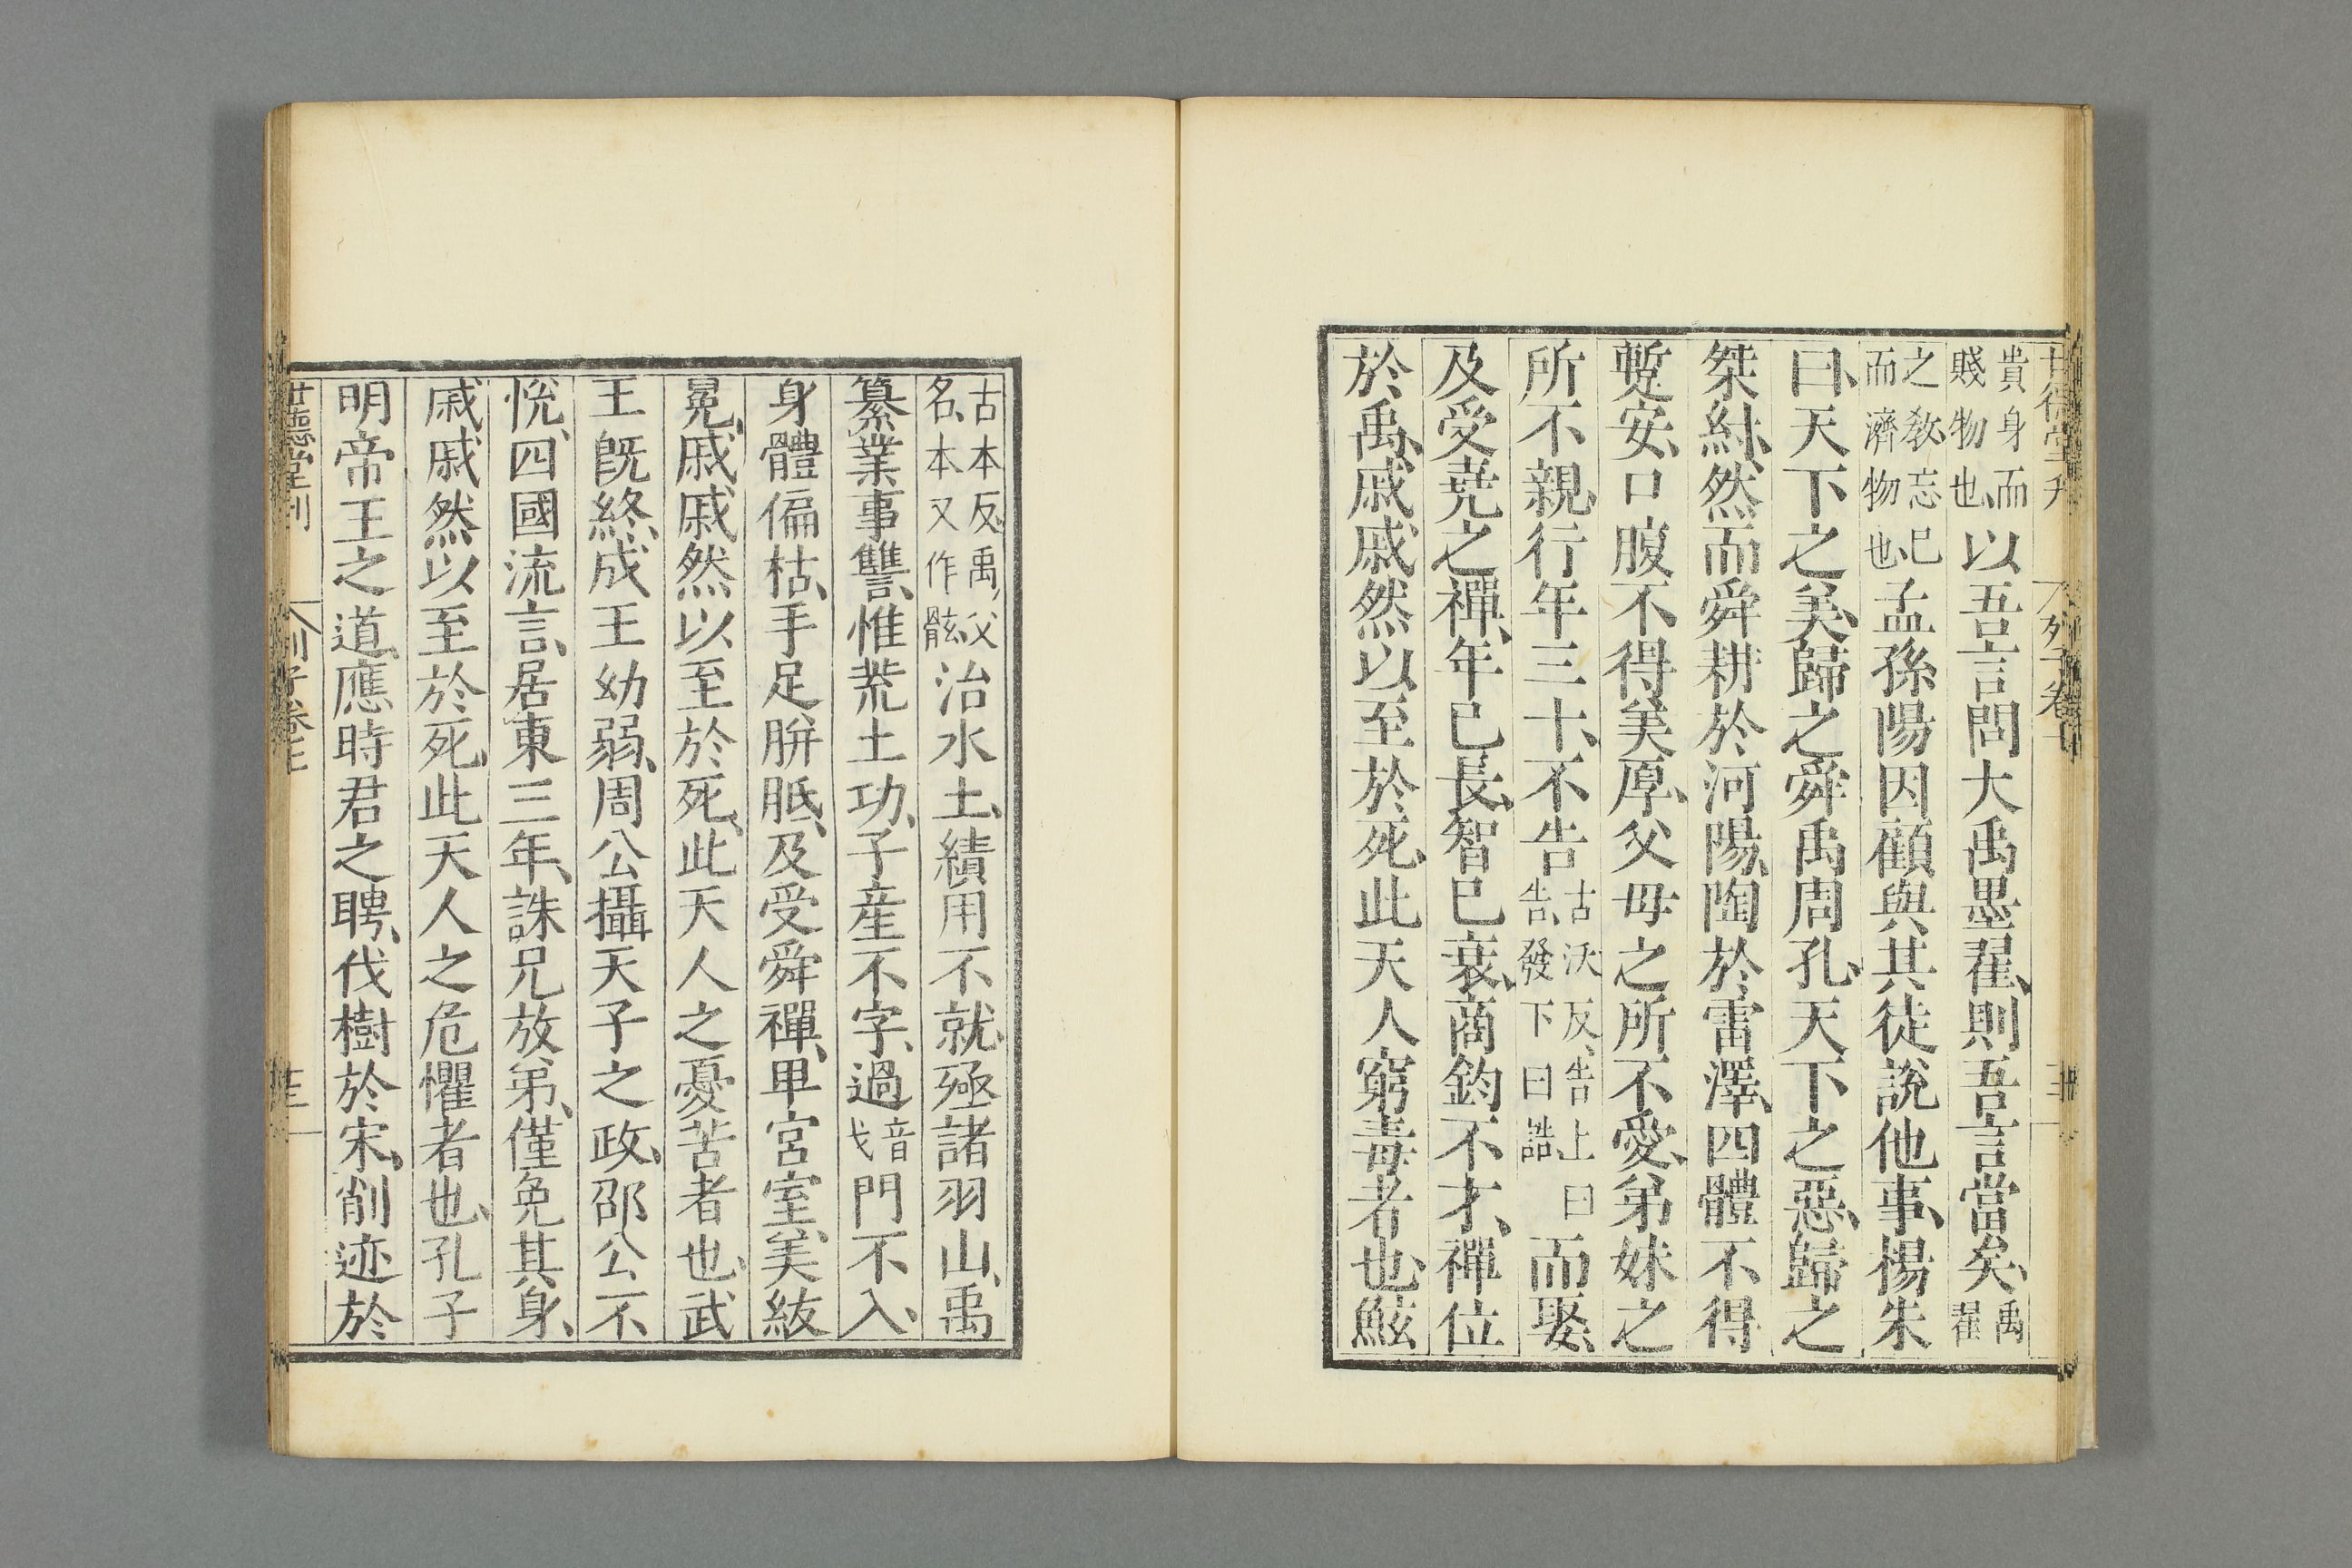 貴身而賤物也、以吾言問大禹墨翟、則吾言當矣、禹翟
之教、忘巳而濟物也、孟孫陽因顧與其徒說他事、楊朱
曰、天下之美、歸之舜禹周孔、天下之惡、歸之
桀紂、然而舜耕於河陽、陶於雷澤、四體不得
蹔安、口腹不得美厚、父母之所不愛、弟妹之
所不親、行年三十、不告古沃反、告上曰告、發下曰誥而娶、
及受堯之禪、年已長、智已衰、商鈞不才、禪位
於禹、戚戚然以至於死、此天人窮毒者也、鮌
古本反、禹父名、本又作骸、治水土、績用不就、殛諸羽山、禹
纂業事讐、惟荒土功、子産不字、過音戈門不入、
身體偏枯、手足胼胝、及受舜禪、卑宮室、美紱
冕、戚戚然以至於死、此天人之憂苦者也、武
王旣終、成王幼弱、周公攝天子之政、邵公不
悅、四國流言、居東三年、誅兄放弟、僅免其身、
戚戚然以至於死、此天人之危懼者也、孔子
明帝王之道、應時君之聘、伐樹於宋、削迹於
世德堂刊 列子卷七